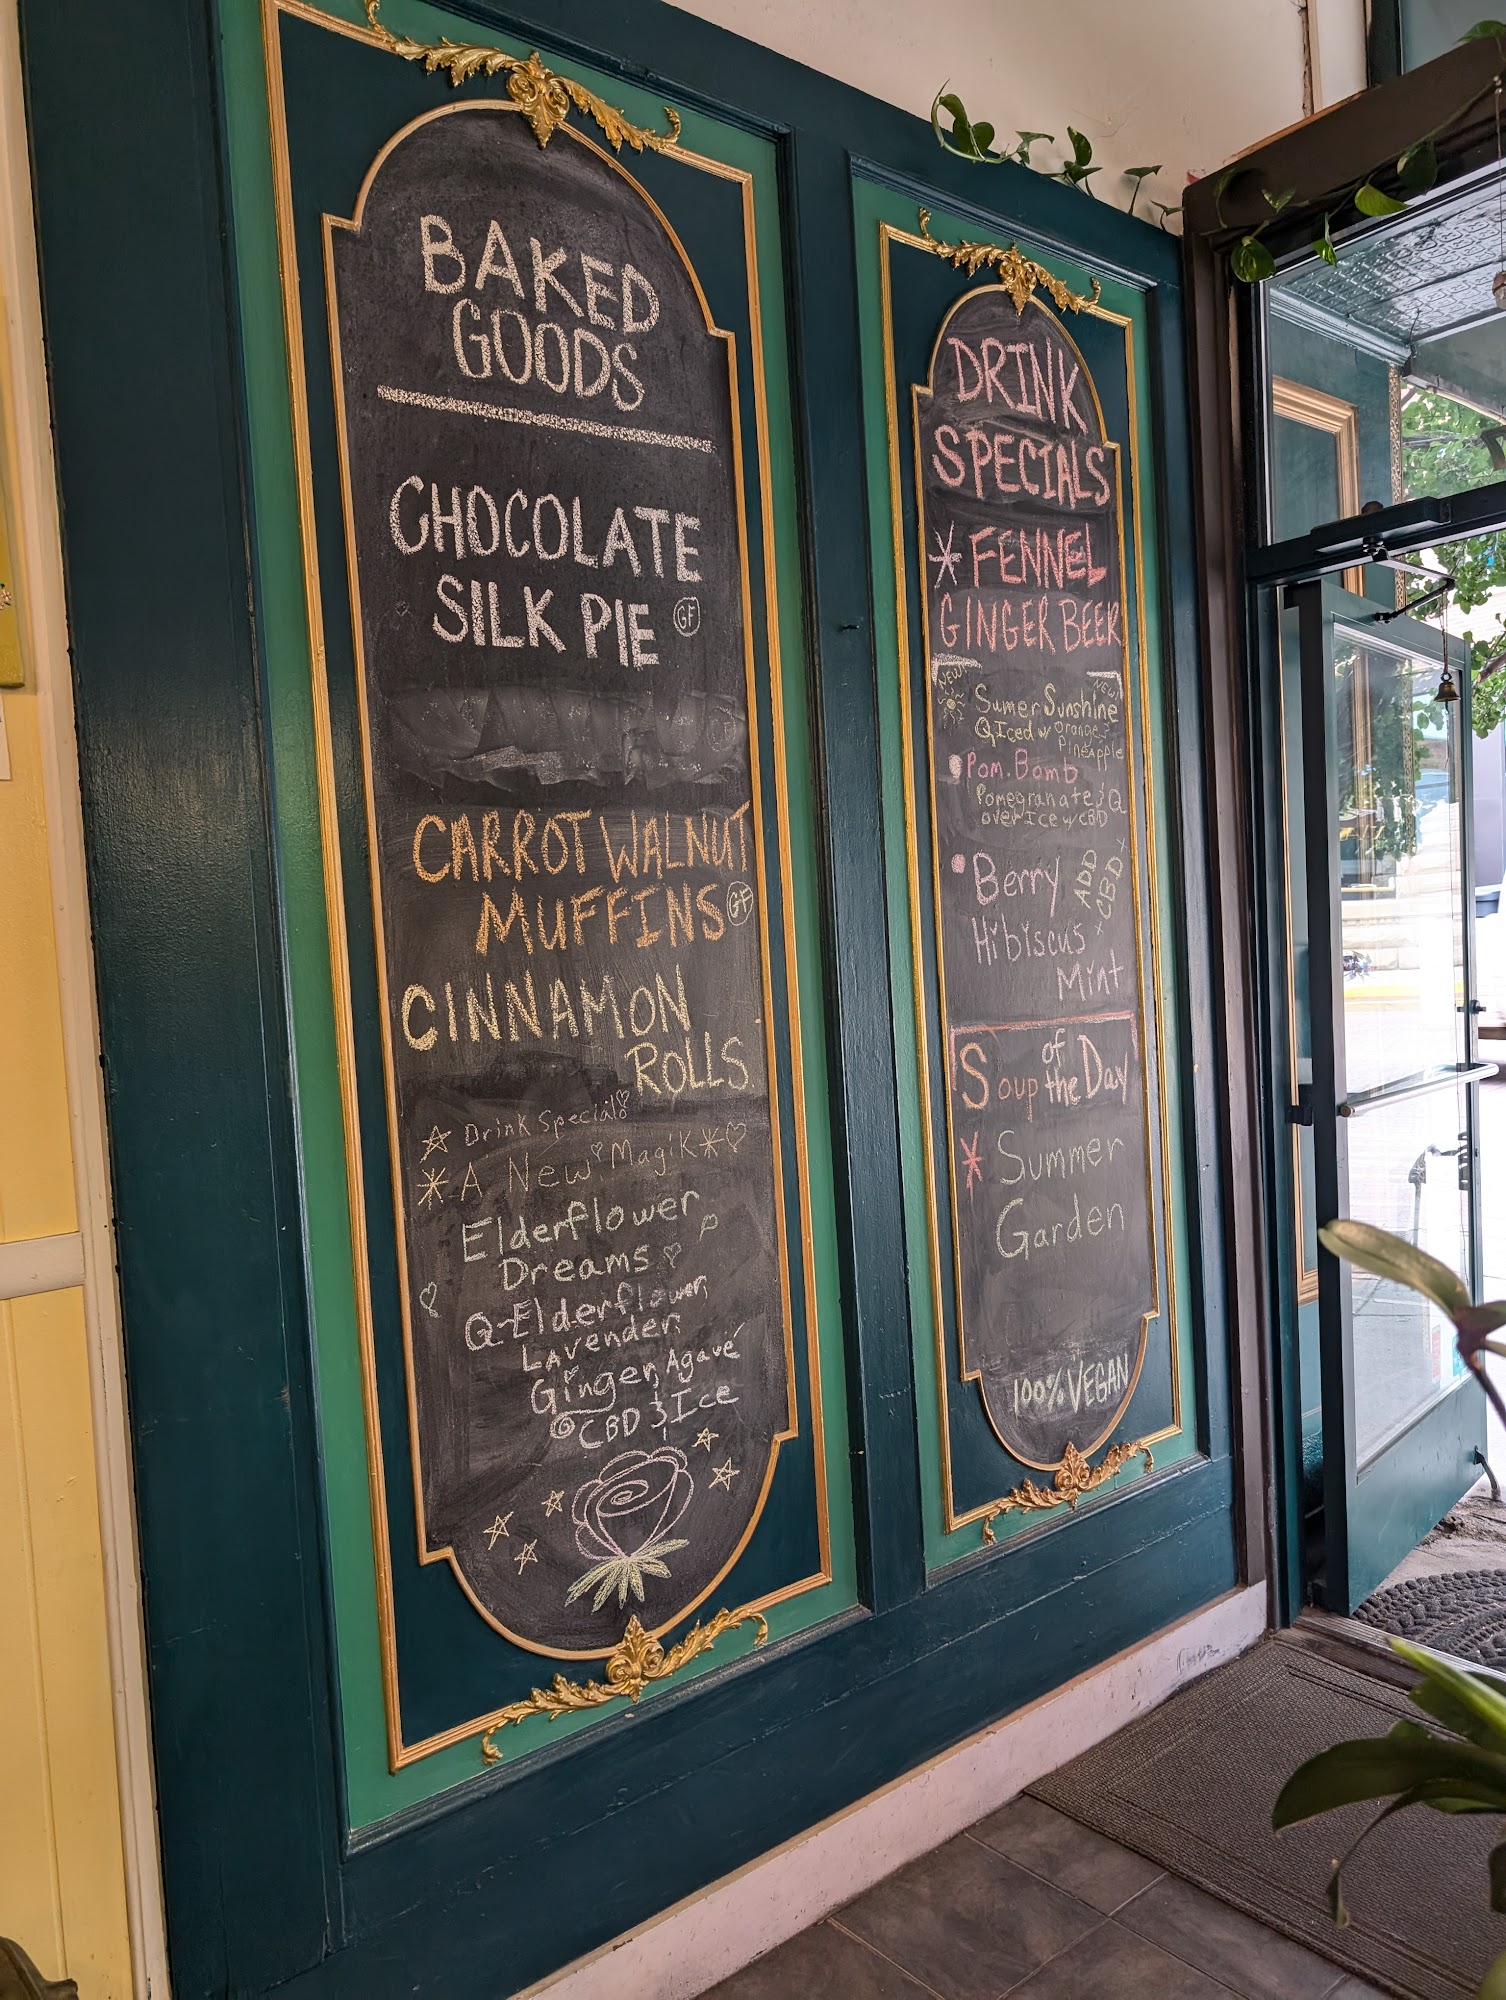 BAKED
GOODS
CHOCOLATE
SILK PIE GF
CARROT WALNUT
MUFFINS GF
CINNAMON
ROLLS
Drink Special
A New Magik
Elderflower
Dreams
Q-Elderflower,
Lavender,
Ginger, Agavé
CBD & Ice
DRINK
SPECIALS
* FENNEL
GINGER BEER
NEW! NEW!
Sumer Sunshine
Q Iced w/ Orange &
Pineapple
Pom. Bomb
Pomegranate & Q
over Ice w/ CBD
Berry
Hibiscus
Mint
ADD
CBD
Soup of the Day
* Summer
Garden
100% VEGAN